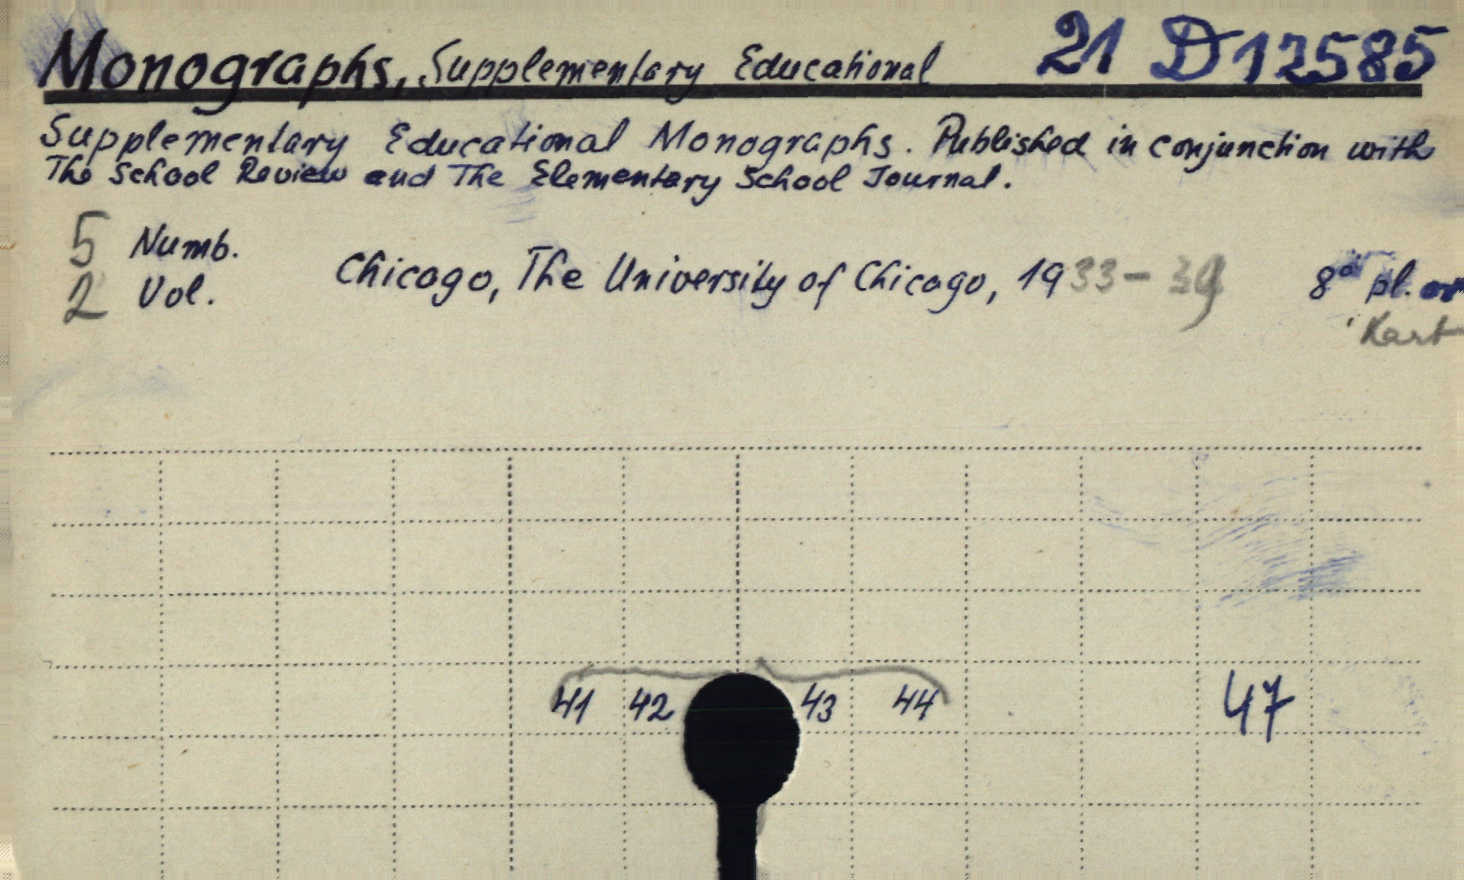 Monographs, Supplementary Educational 21 D 12585
Supplementary Educational Monographs. Published in conjunction with
The School Review and The Elementary School Journal.
5 Numb.
2 Vol.
Chicago, The University of Chicago, 1933-39 8° pl.
Kart
41 42 43 44 47